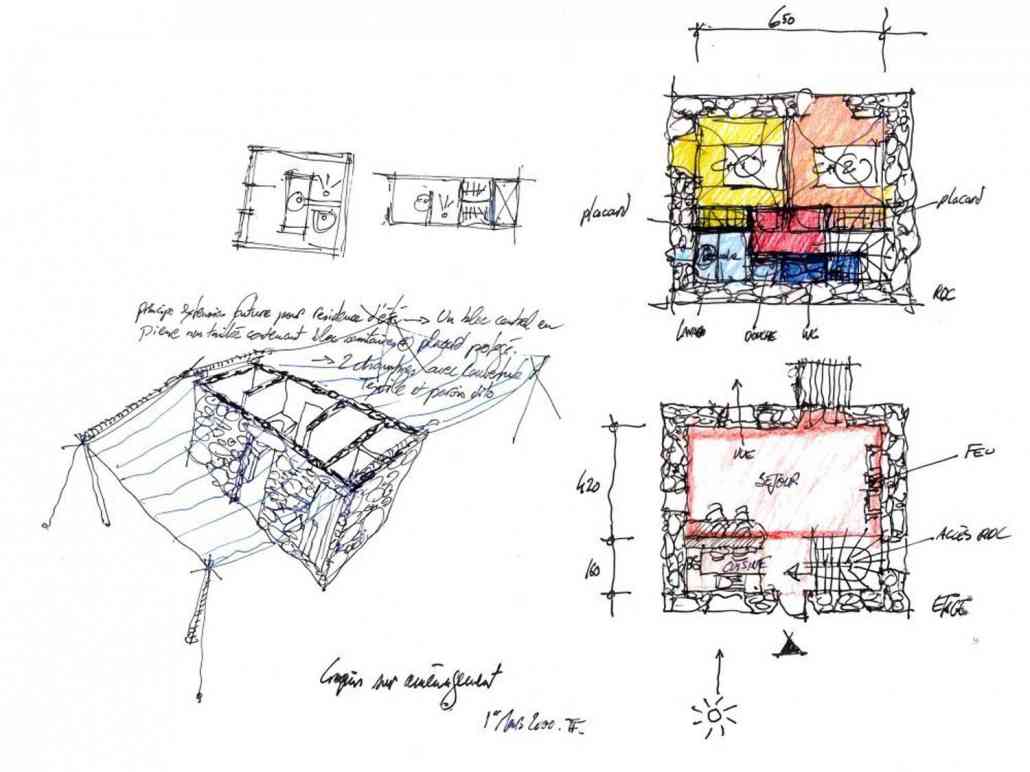 650
CH 1
CH 2
placard
placard
RDC
LAVABO
DOUCHE
WC
principe extension future pour residence d'été → Un bloc central en
pierre non taillée contenant bloc sanitaires et placard protégé.
→ 2 chambres avec couverture
textile et parois dito
VUE
SEJOUR
FEU
420
CUISINE
ACCÈS RDC
160
ETAGE
Croquis sur aménagement
1er Mars 2000. TF.